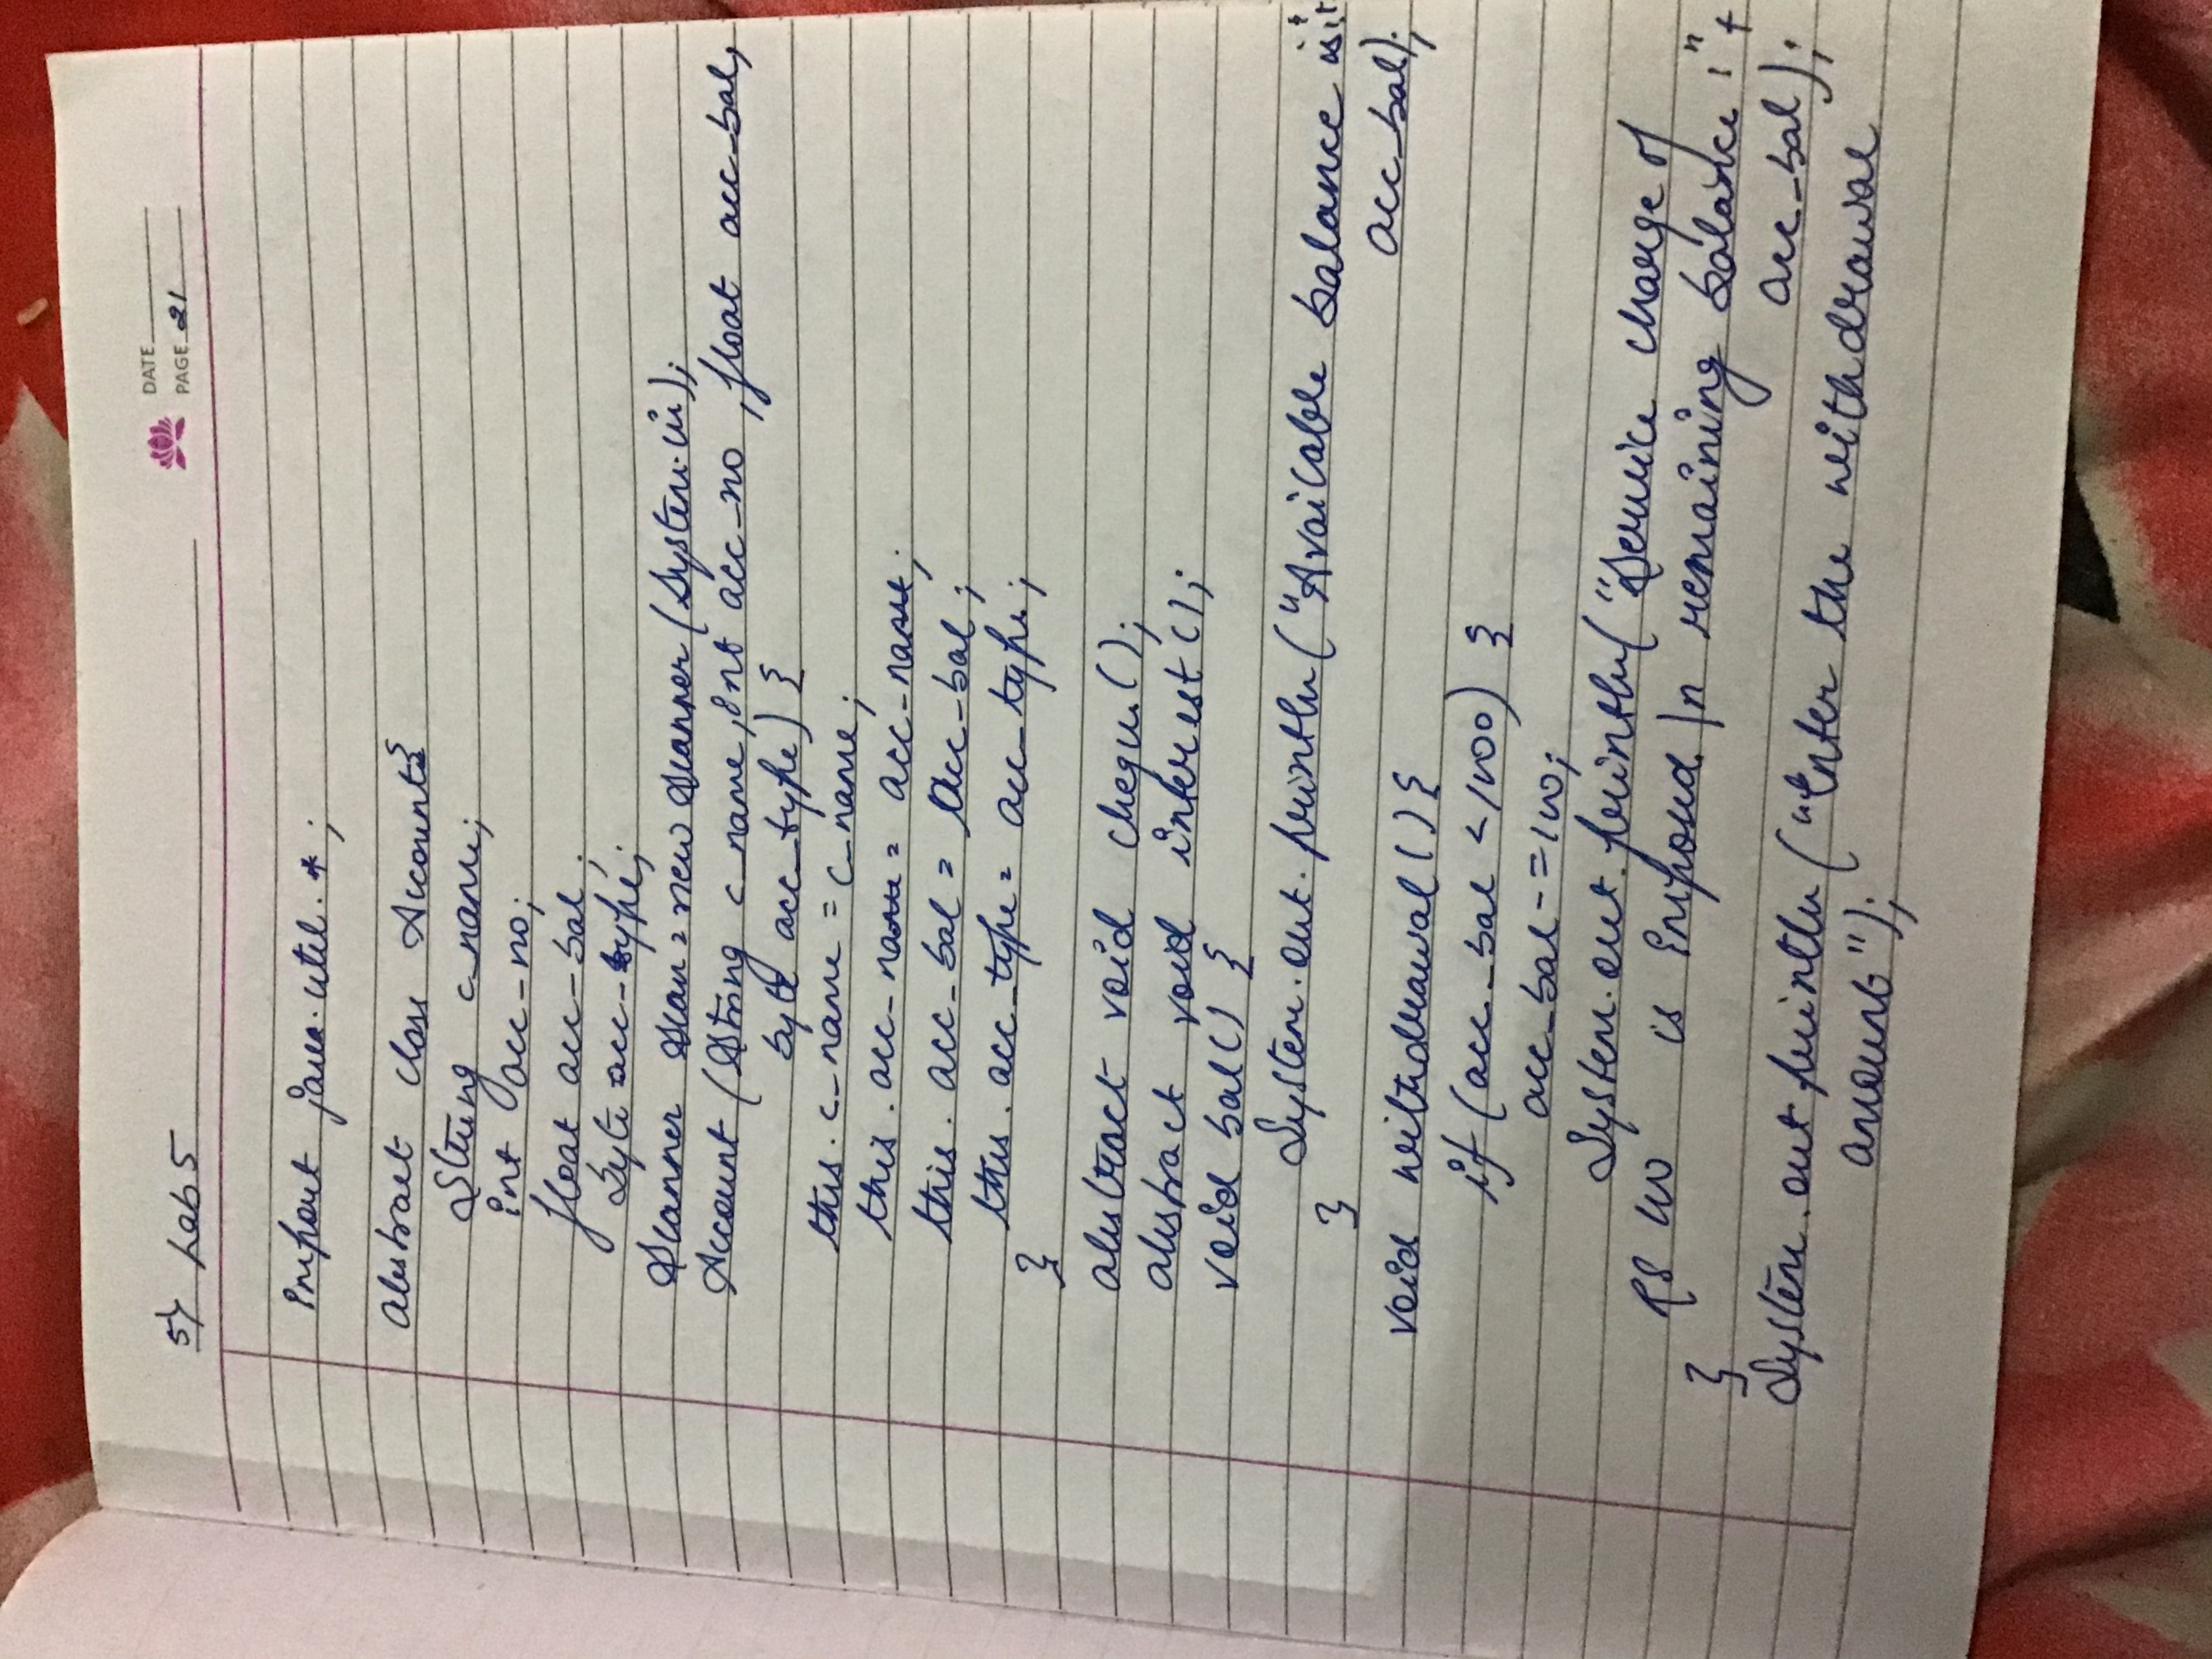 5) Lab 5
DATE
PAGE 21
import java.util.*;
abstract class Account{
String c_name;
int acc_no;
float acc_bal;
byte acc_type;
Scanner scan = new Scanner(System.in);
Account (String c_name, int acc_no, float acc_bal,
byte acc_type) {
this.c_name = c_name;
this.acc_name = acc_name;
this.acc_bal = acc_bal;
this.acc_type = acc_type;
}
abstract void cheque();
abstract void interest();
void bal() {
System.out.println("Available balance is:"+
acc_bal);
}
void withdrawal(){
if (acc_bal < 1000) {
acc_bal -= 100;
System.out.println("Service charge of
RS 100 is imposed \n remaining balance :" +
acc_bal);
}
System.out.println("Enter the withdrawal
amount");